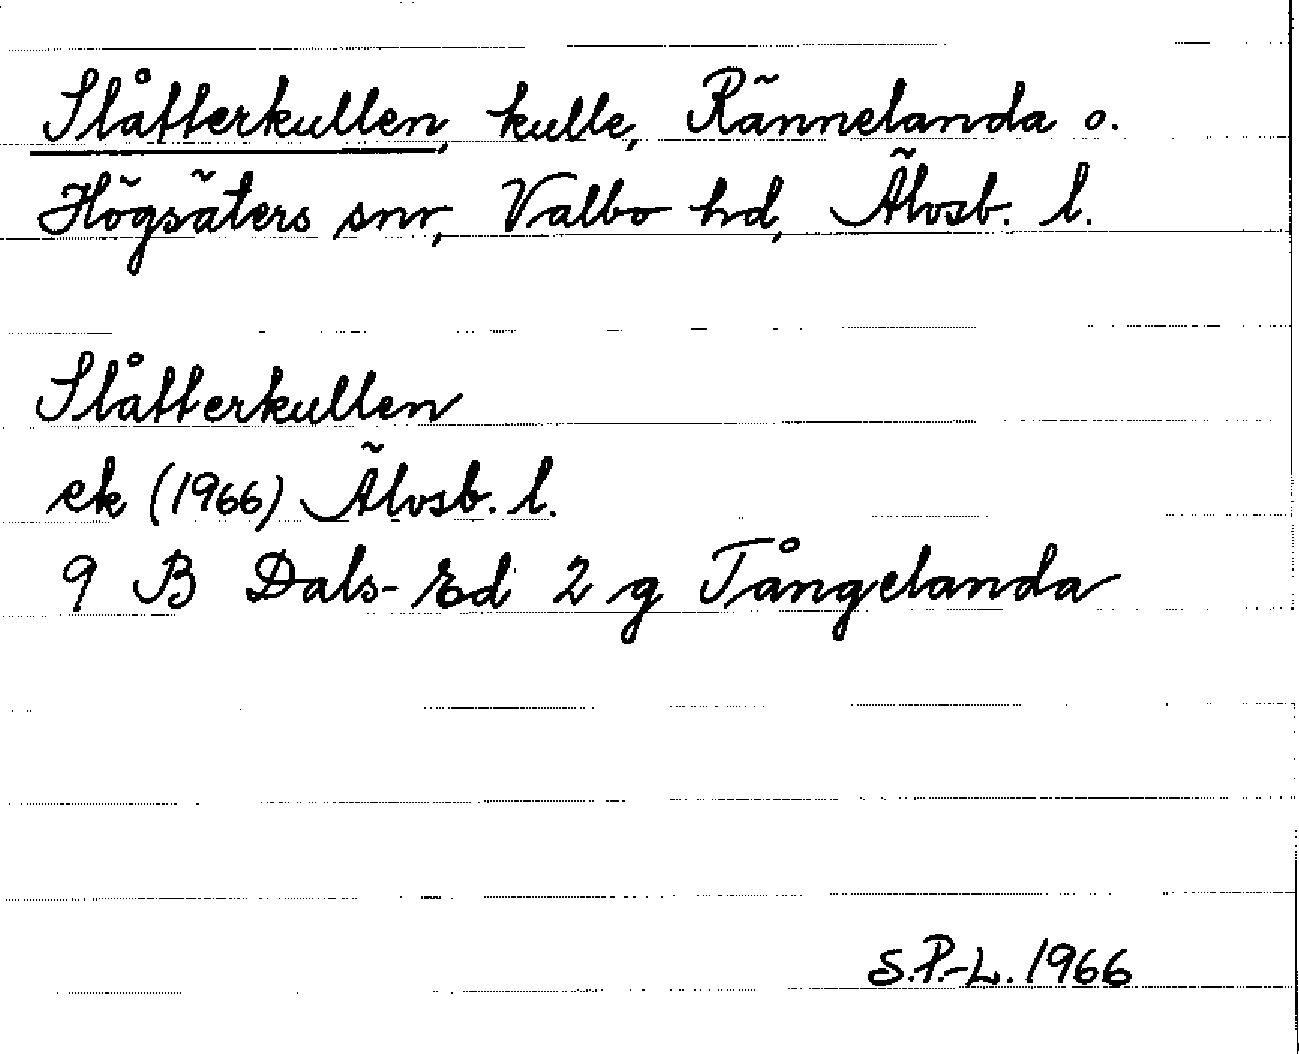 Slåtterkullen, kulle, Rännelanda o.
Högsäters snr, Valbo hd, Älvsb. l.
Slåtterkullen
ek (1966) Älvsb. l.
9 B Dals-Ed 2 g Tångelanda
S.P.-L. 1966